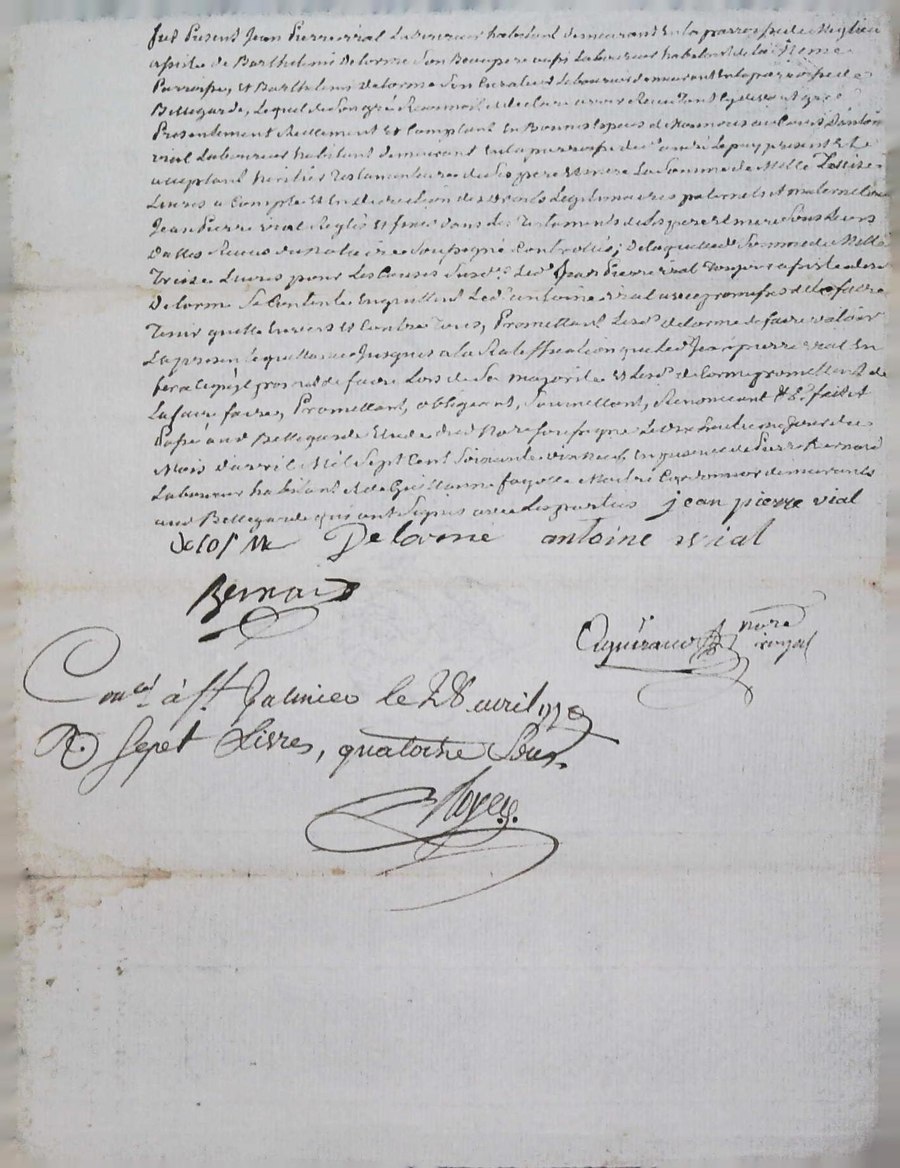 fut Present Jean Pierre vial Laboureur habitant demeurant en la parroisse de
assisté de Barthelemi Delorme Son Beaupere aussi Laboureur habitant de la meme
Parroisse, et Barthelemi Delorme Son Laboureur demeurant en la parroisse de
Bellegarde, Lequel de Son gré Reconnoit et declare avoir Receu
Presentement Reellement et Comptant en Bonnes Especes de Cours D'antoine
vial Laboureur habitant demeurant en la parroisse de St andré Le puy present et
acceptant heritier Testamentaire de Ses pere et mere La Somme de Mille Treise
Livres a Compte et en deduction des droits Legitimaires paternels et maternels
Jean Pierre vial Reglés et fixés dans les Testaments de Ses pere et mere Sous Leurs
Dattes Receus du Notaire Soussigné Controllés; De laquelle Somme de Mille
Treise Livres pour Les Causes Susd.es Led. Jean Pierre vial Toujours assisté
Delorme Se Contente en quittent Led. antoine vial avec promesse de Le faire
Tenir quitte Envers et Contre Tous, Promettant Lesd. delorme de faire valoir
La presente quittance Jusques a la Ratiffication que Led. Jean pierre vial
promet de faire Lors de Sa majorité et Lesd. delorme promettent de
La faire faire, Promettant, obligeant, Soumettant, Renonceant &c. fait et
Passé aud. Bellegarde Etude dud. Nore soussigné Le jour du
Mois d'avril Mil Sept Cent Soixante en presence de Pierre Bernard
Laboureur habitant et de Guillaume fayolle Maitre Cordonnier demeurants
aud. Bellegarde qui ont Signés avec Les parties jean pierre vial
delorme Delorme antoine vial
Bernard
nore royal
Con.lé à St. Galmier le 28 avril
R. Sept Livres, quatorse Sous.